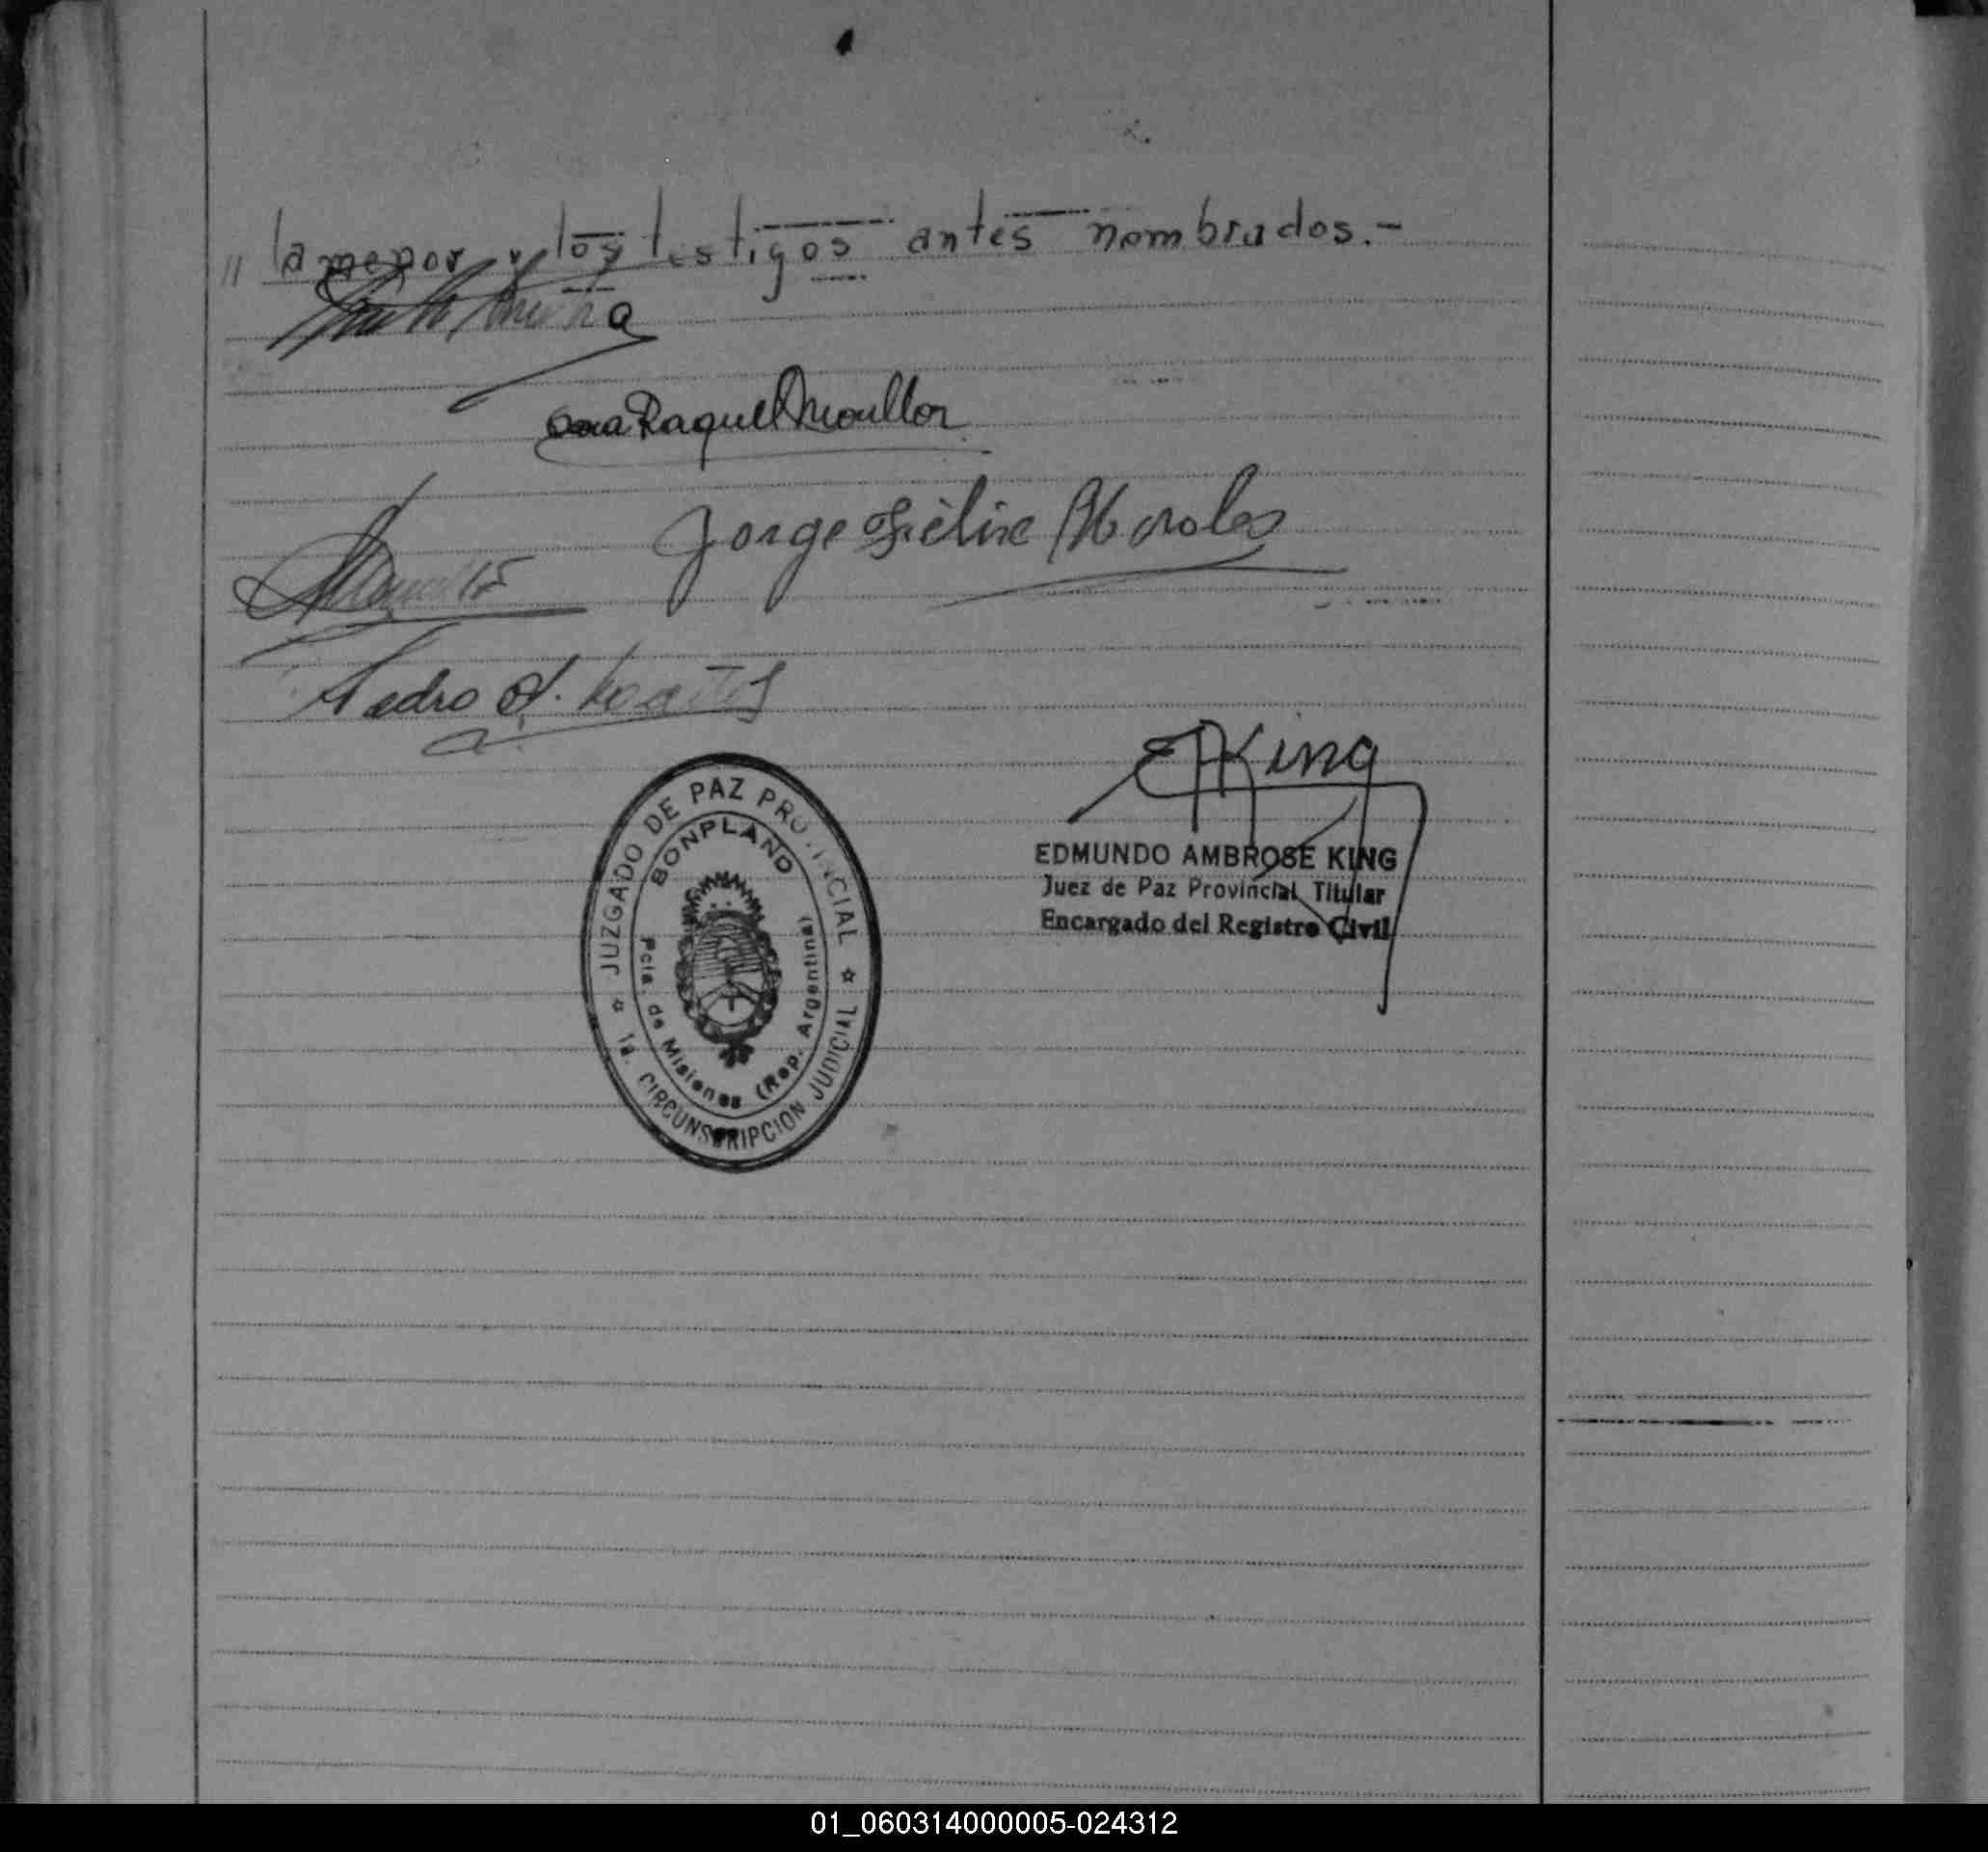 " la menor y los testigos antes nombrados.-
Raquel Moullor
Jorge Félix Morales
Pedro
EKing
EDMUNDO AMBROSE KING
Juez de Paz Provincial Titular
Encargado del Registro Civil
☆ JUZGADO DE PAZ PROVINCIAL ☆
1a. CIRCUNSCRIPCION JUDICIAL
BONPLAND
Pcia. de Misiones (Rep. Argentina)
01_060314000005-024312